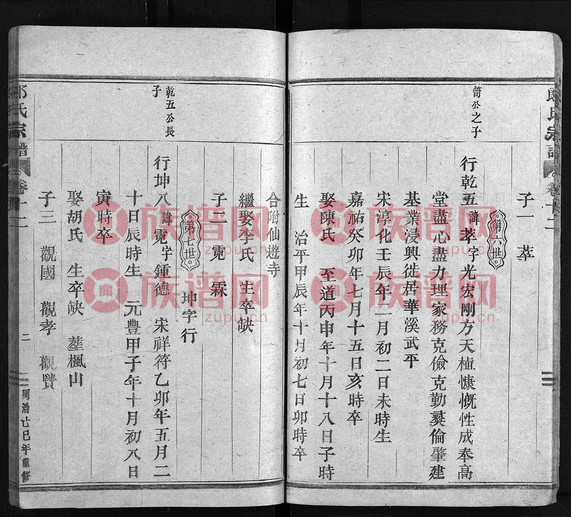 郎氏宗譜 卷十二
子一 萃
第六世
荀公之子
行乾五諱萃字光宏剛方天植慷慨性成奉高
堂盡心盡力理家務克儉克勤彝倫肇建
基業浸興徙居華溪武平
宋淳化壬辰年二月初二日未時生
嘉祐癸卯年七月十五日亥時卒
娶陳氏 至道丙申年十月十八日子時
生 治平甲辰年十月初七日卯時卒
合附仙遊寺
繼娶李氏 生卒缺
子二 霓 霖
第七世 坤字行
乾五公長子
行坤八諱霓字鍾德 宋祥符乙卯年五月二
十日辰時生 元豐甲子年十月初八日
寅時卒
娶胡氏 生卒缺 墓楓山
子三 觀國 觀孝 觀賢
郎氏宗譜 卷十二
二
同治己巳年重修
族谱网
www.zupu.cn
族谱网
www.zupu.cn
族谱网
www.zupu.cn
族谱网
www.zupu.cn